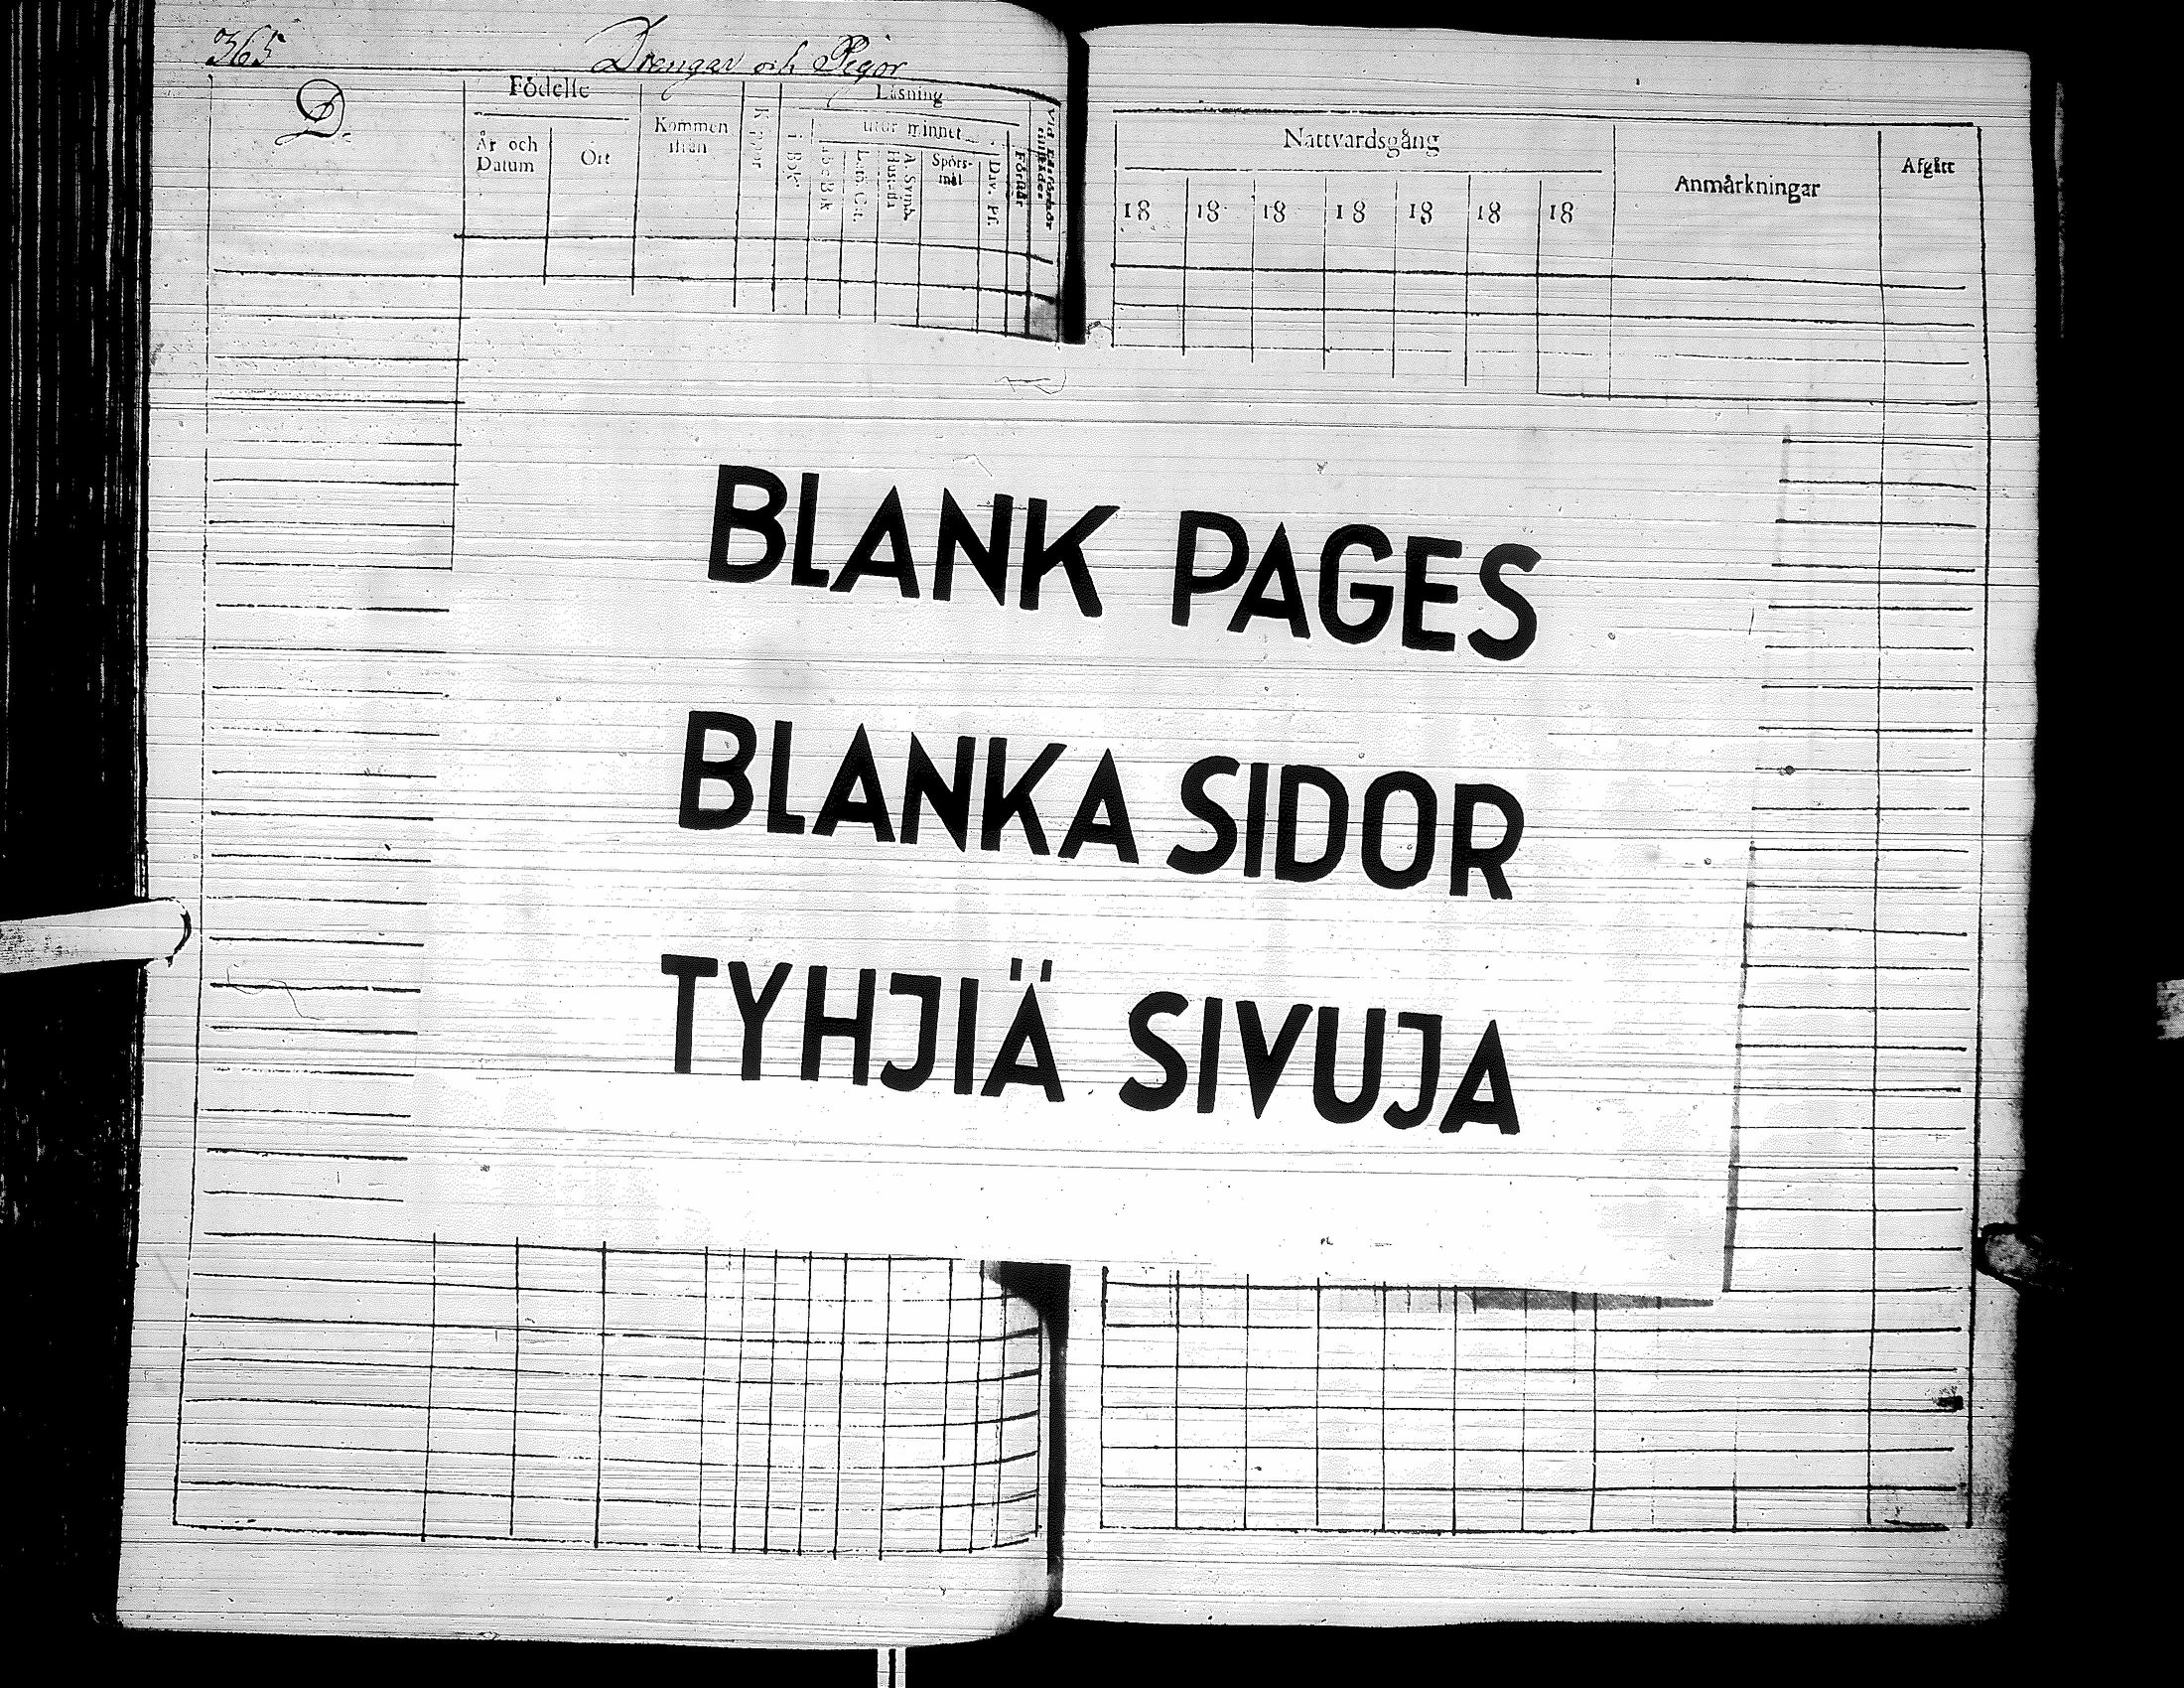 365
Drengar och Pigor
D.
Födelse
År och Datum
Ort
Kommen ifrån
Koppor
Läsning
i Bok
utur minnet
abc Bok
Luth. Cat.
A. Symb.
Hust.
Spörs-mål
Dav. Ps.
Förstår
Nattvardsgång
18 18 18 18 18 18 18
Anmärkningar
Afgått
BLANK PAGES
BLANKA SIDOR
TYHJIÄ SIVUJA